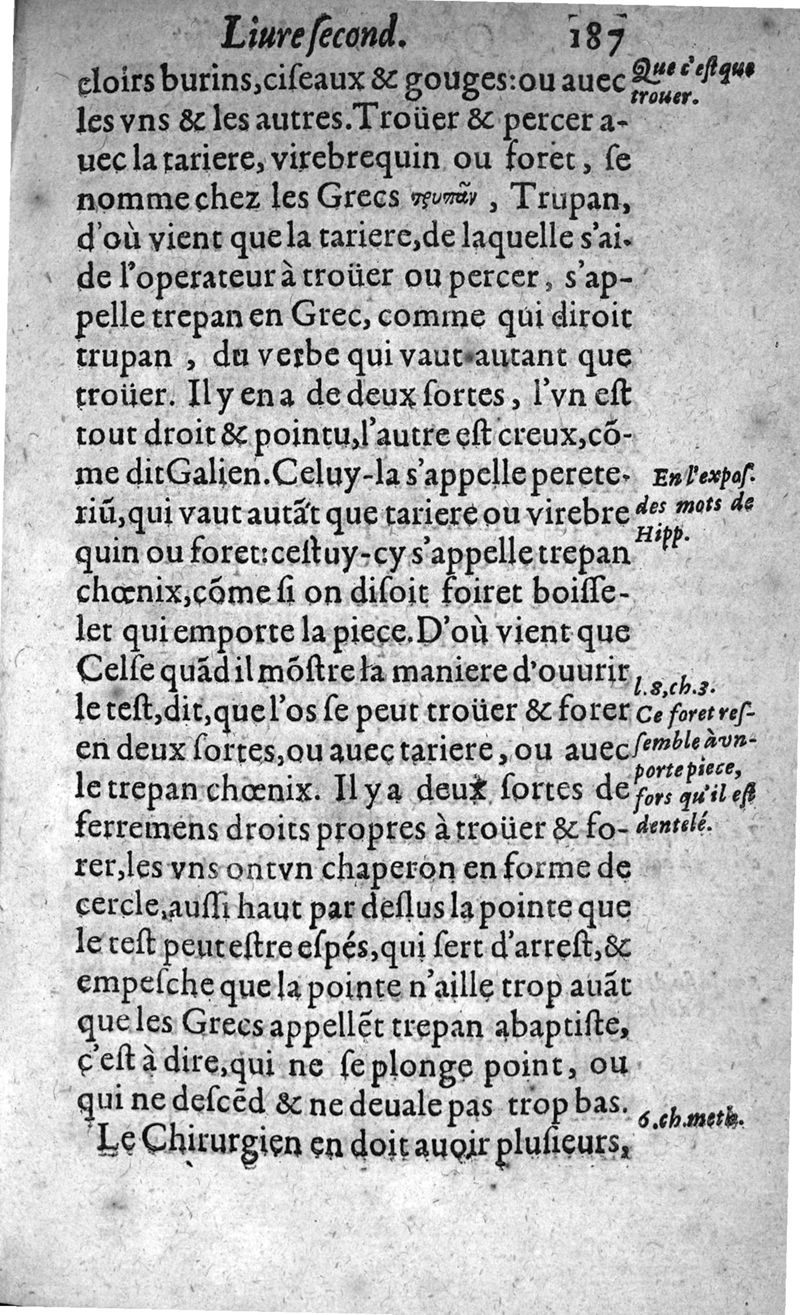 Liure ſecond. 187
cloirs burins,ciſeaux & gouges:ou auec
les vns & les autres.Troüer & percer a-
uec la tariere, virebrequin ou foret, ſe
nomme chez les Grecs τρυπᾶν , Trupan,
d'où vient que la tariere,de laquelle s'ai-
de l'operateur à troüer ou percer, s'ap-
pelle trepan en Grec, comme qui diroit
trupan , du verbe qui vaut autant que
troüer. Il y en a de deux ſortes, l'vn eſt
tout droit & pointu,l'autre eſt creux,cõ-
me dit Galien.Celuy-la s'appelle perete-
riũ,qui vaut autãt que tariere ou virebre
quin ou foret:ceſtuy-cy s'appelle trepan
chœnix,cõme ſi on diſoit foiret boiſſe-
let qui emporte la piece.D'où vient que
Celſe quãd il mõſtre la maniere d'ouurir
le teſt,dit,que l'os ſe peut troüer & forer
en deux ſortes,ou auec tariere, ou auec
le trepan chœnix. Il y a deux ſortes de
ferremens droits propres à troüer & fo-
rer,les vns ont vn chaperon en forme de
cercle,auſſi haut par deſſus la pointe que
le teſt peut eſtre eſpés,qui ſert d'arreſt,&
empeſche que la pointe n'aille trop auãt
que les Grecs appellẽt trepan abaptiſte,
c'eſt à dire,qui ne ſe plonge point, ou
qui ne deſcẽd & ne deuale pas trop bas.
Le Chirurgien en doit auoir pluſieurs,
Que c'eſt que
trouer.
En l'expoſ.
des mots de
Hipp.
l. 8,ch.3.
Ce foret reſ-
ſemble à vn-
porte piece,
fors qu'il eſt
dentelé.
6.ch.meth.